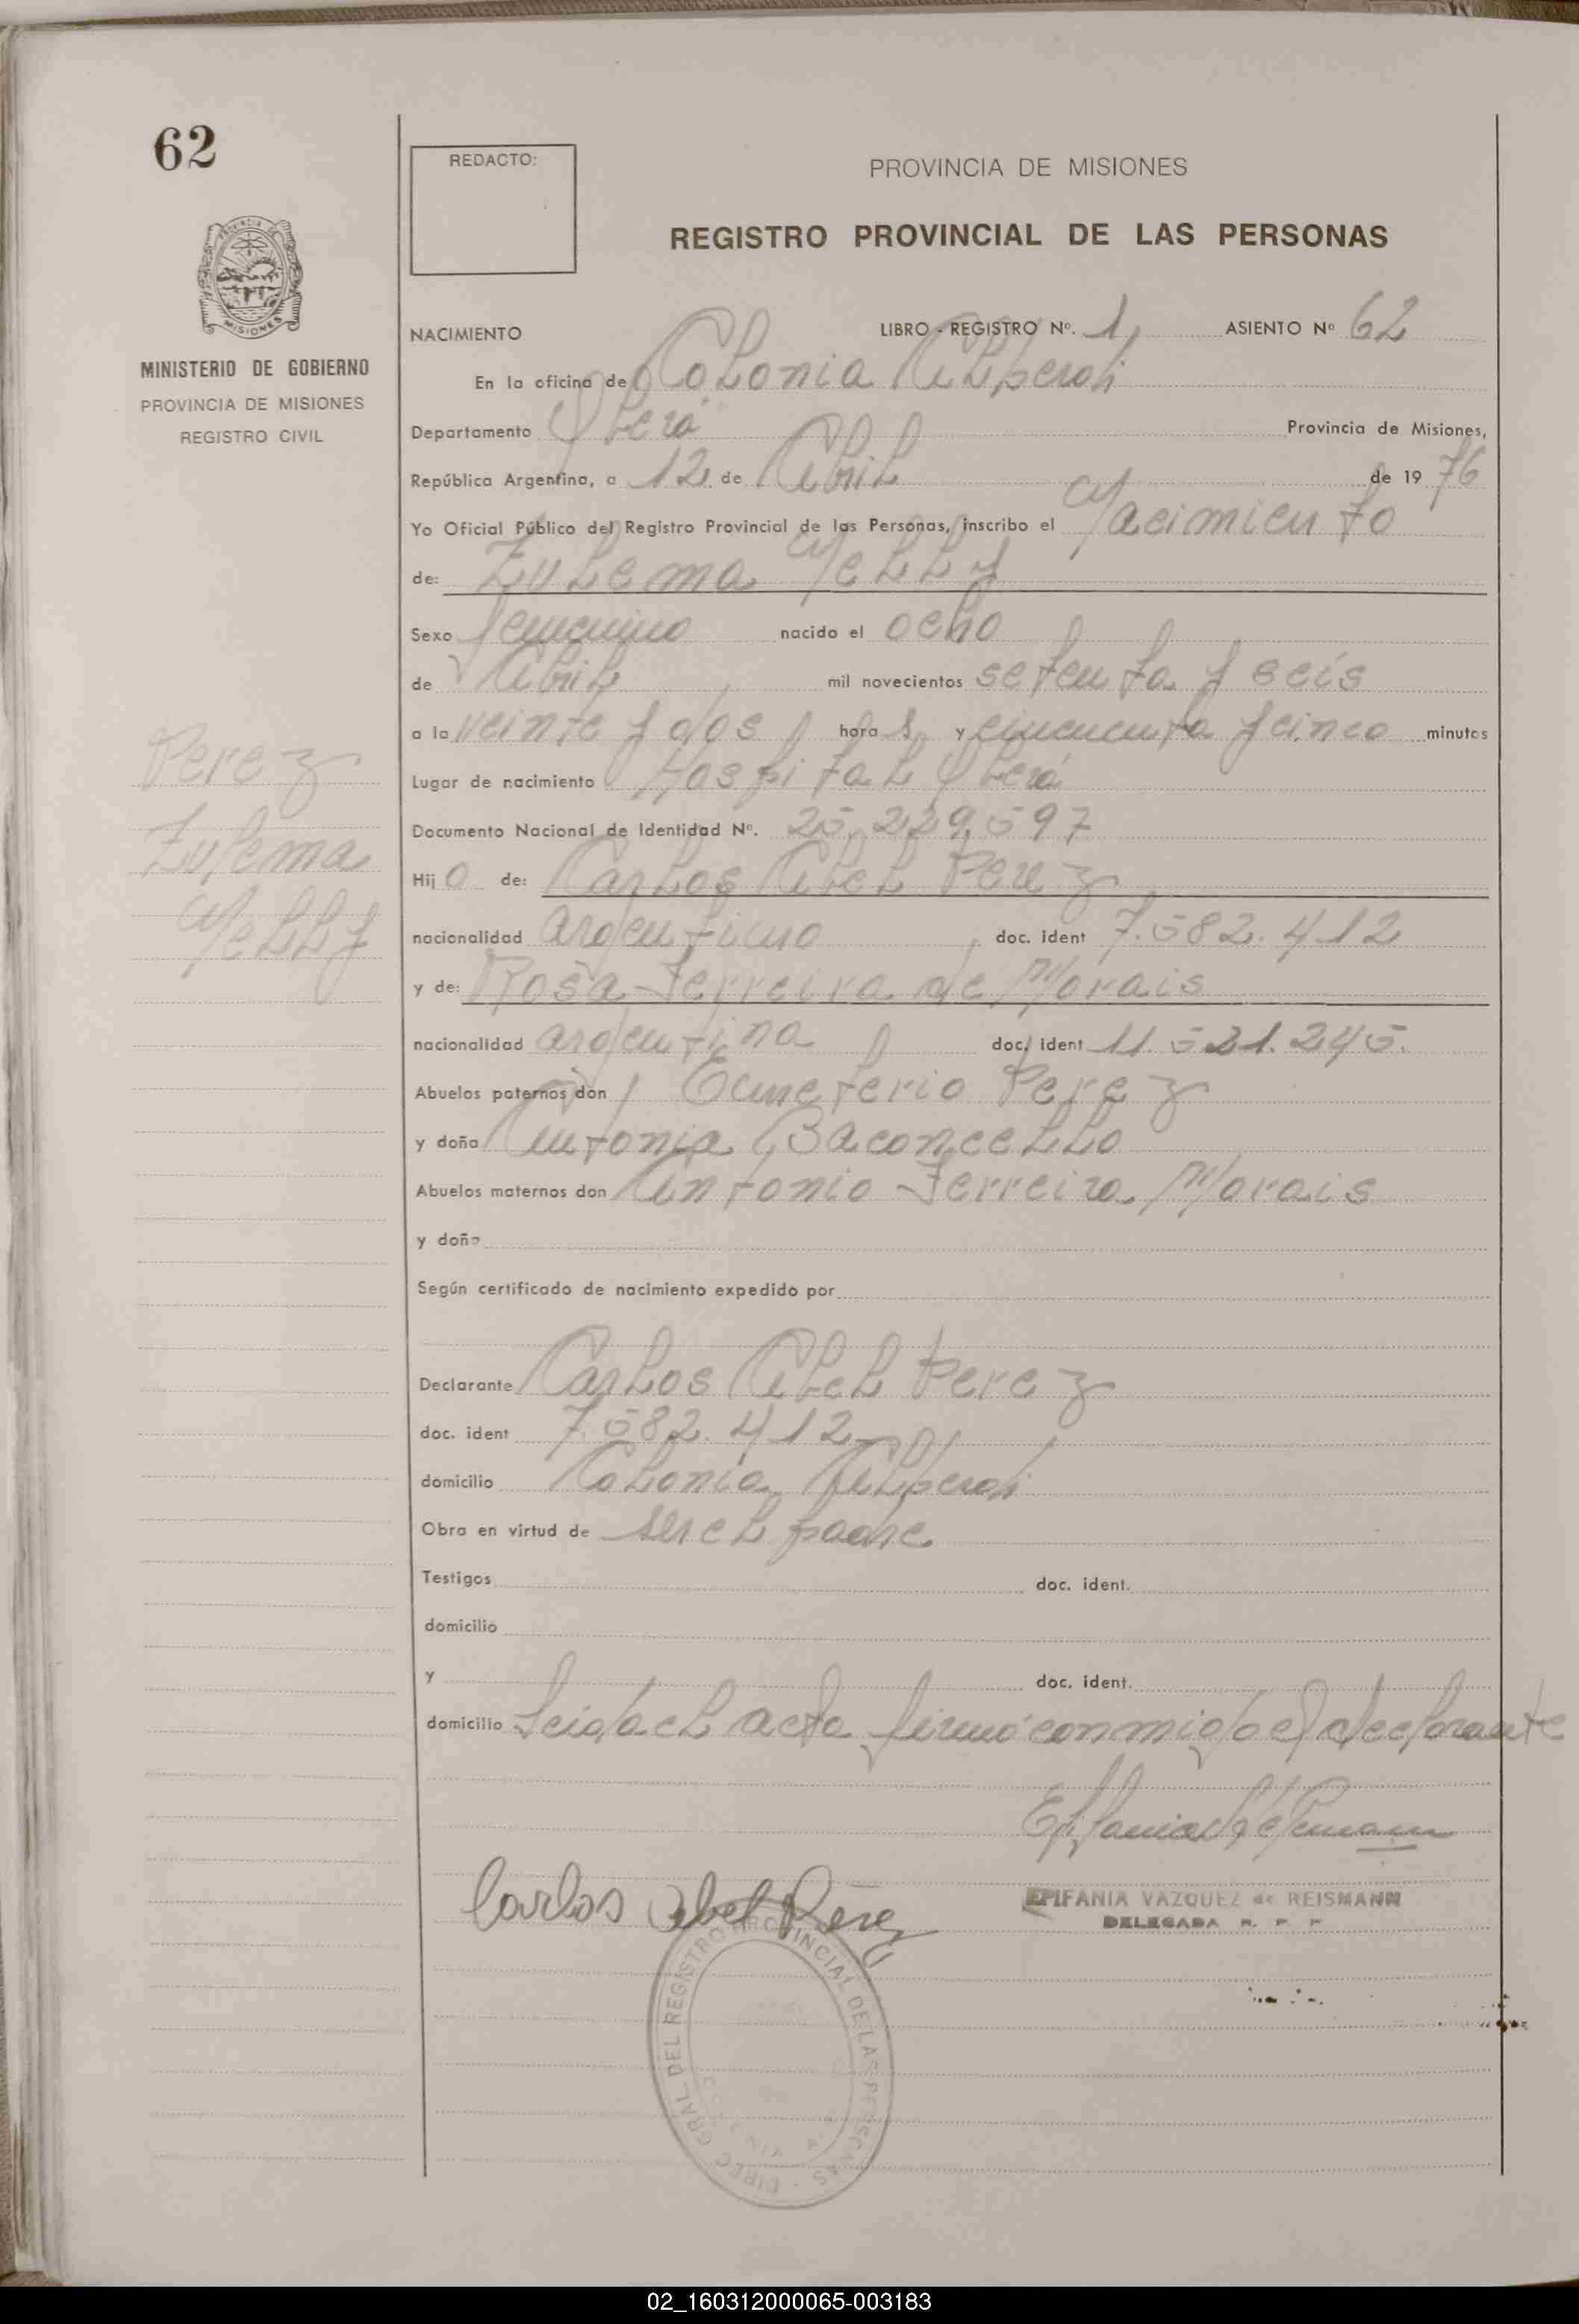 62
REDACTO:
PROVINCIA DE MISIONES
REGISTRO PROVINCIAL DE LAS PERSONAS
PROVINCIA DE
MISIONES
MINISTERIO DE GOBIERNO
PROVINCIA DE MISIONES
REGISTRO CIVIL
NACIMIENTO LIBRO - REGISTRO Nº. 1, ASIENTO Nº 62
En la oficina de Colonia Alberdi
Departamento Oberá Provincia de Misiones,
República Argentina, a 12 de Abril de 19 76
Yo Oficial Público del Registro Provincial de las Personas, inscribo el Nacimiento
de: Zulema Nelly
Sexo femenino nacido el ocho
de Abril mil novecientos setenta y seis
a la veinte y dos hora s y cincuenta y cinco minutos
Lugar de nacimiento Hospital Oberá
Documento Nacional de Identidad Nº. 25.229.597
Hij a de: Carlos Abel Perez
nacionalidad argentino doc. ident 7.582.412
y de: Rosa Ferreira de Morais
nacionalidad argentina doc. ident 11.521.245.
Abuelos paternos don Emeterio Perez
y doña Antonia
Abuelos maternos don Antonio Ferreira Morais
y doña
Según certificado de nacimiento expedido por
Declarante Carlos Abel Perez
doc. ident 7.582.412
domicilio Colonia Alberdi
Obra en virtud de ser el padre
Testigos doc. ident.
domicilio
y doc. ident.
domicilio Leida el acta firmó conmigo el declarante
Carlos Abel Pérez
EPIFANIA VAZQUEZ de REISMANN
DELEGADA R. P. P
DIREC. GRAL DEL REGISTRO PROVINCIAL DE LAS PERSONAS
Perez
Zulema
Nelly
02_160312000065-003183